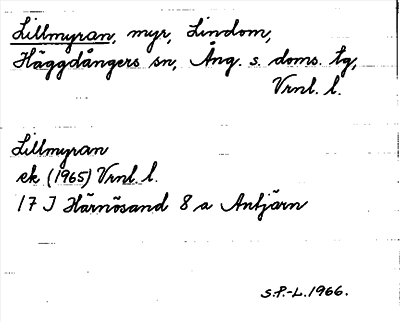 Lillmyran, myr, Lindom,
Häggdångers sn, Ång. s. doms. tg,
Vrnl. l.
Lillmyran
ek (1965) Vrnl. l.
17 J Härnösand 8 a Antjärn
S.P.-L. 1966.